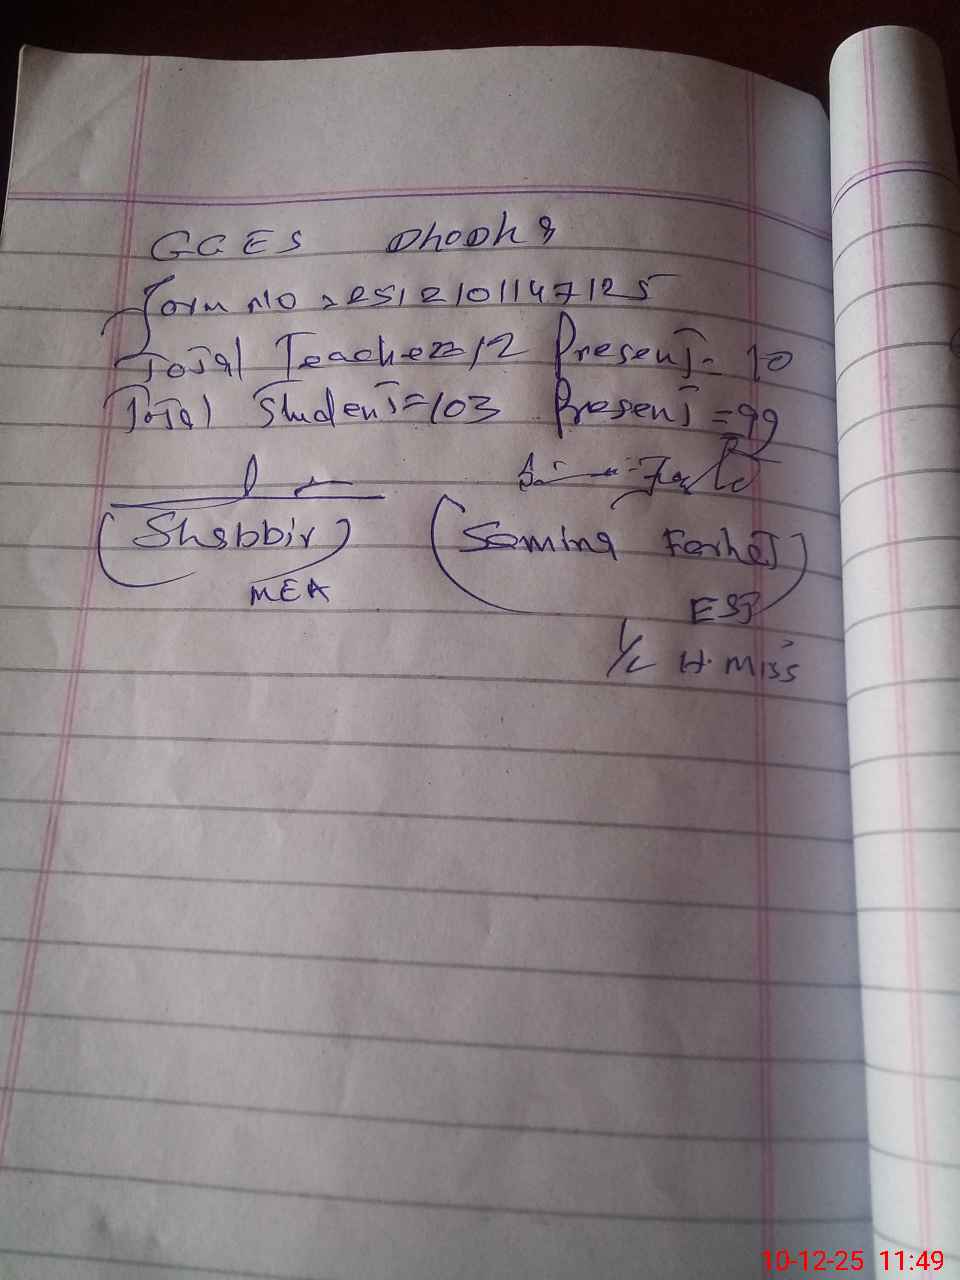 GGES Dhooks
Form No 2512101147125
Total Teacher=12 Present= 10
Total Student=103 Present =99
(Shabbir)
MEA
(Samina Farhat)
EST
I/C H. Miss
10-12-25 11:49